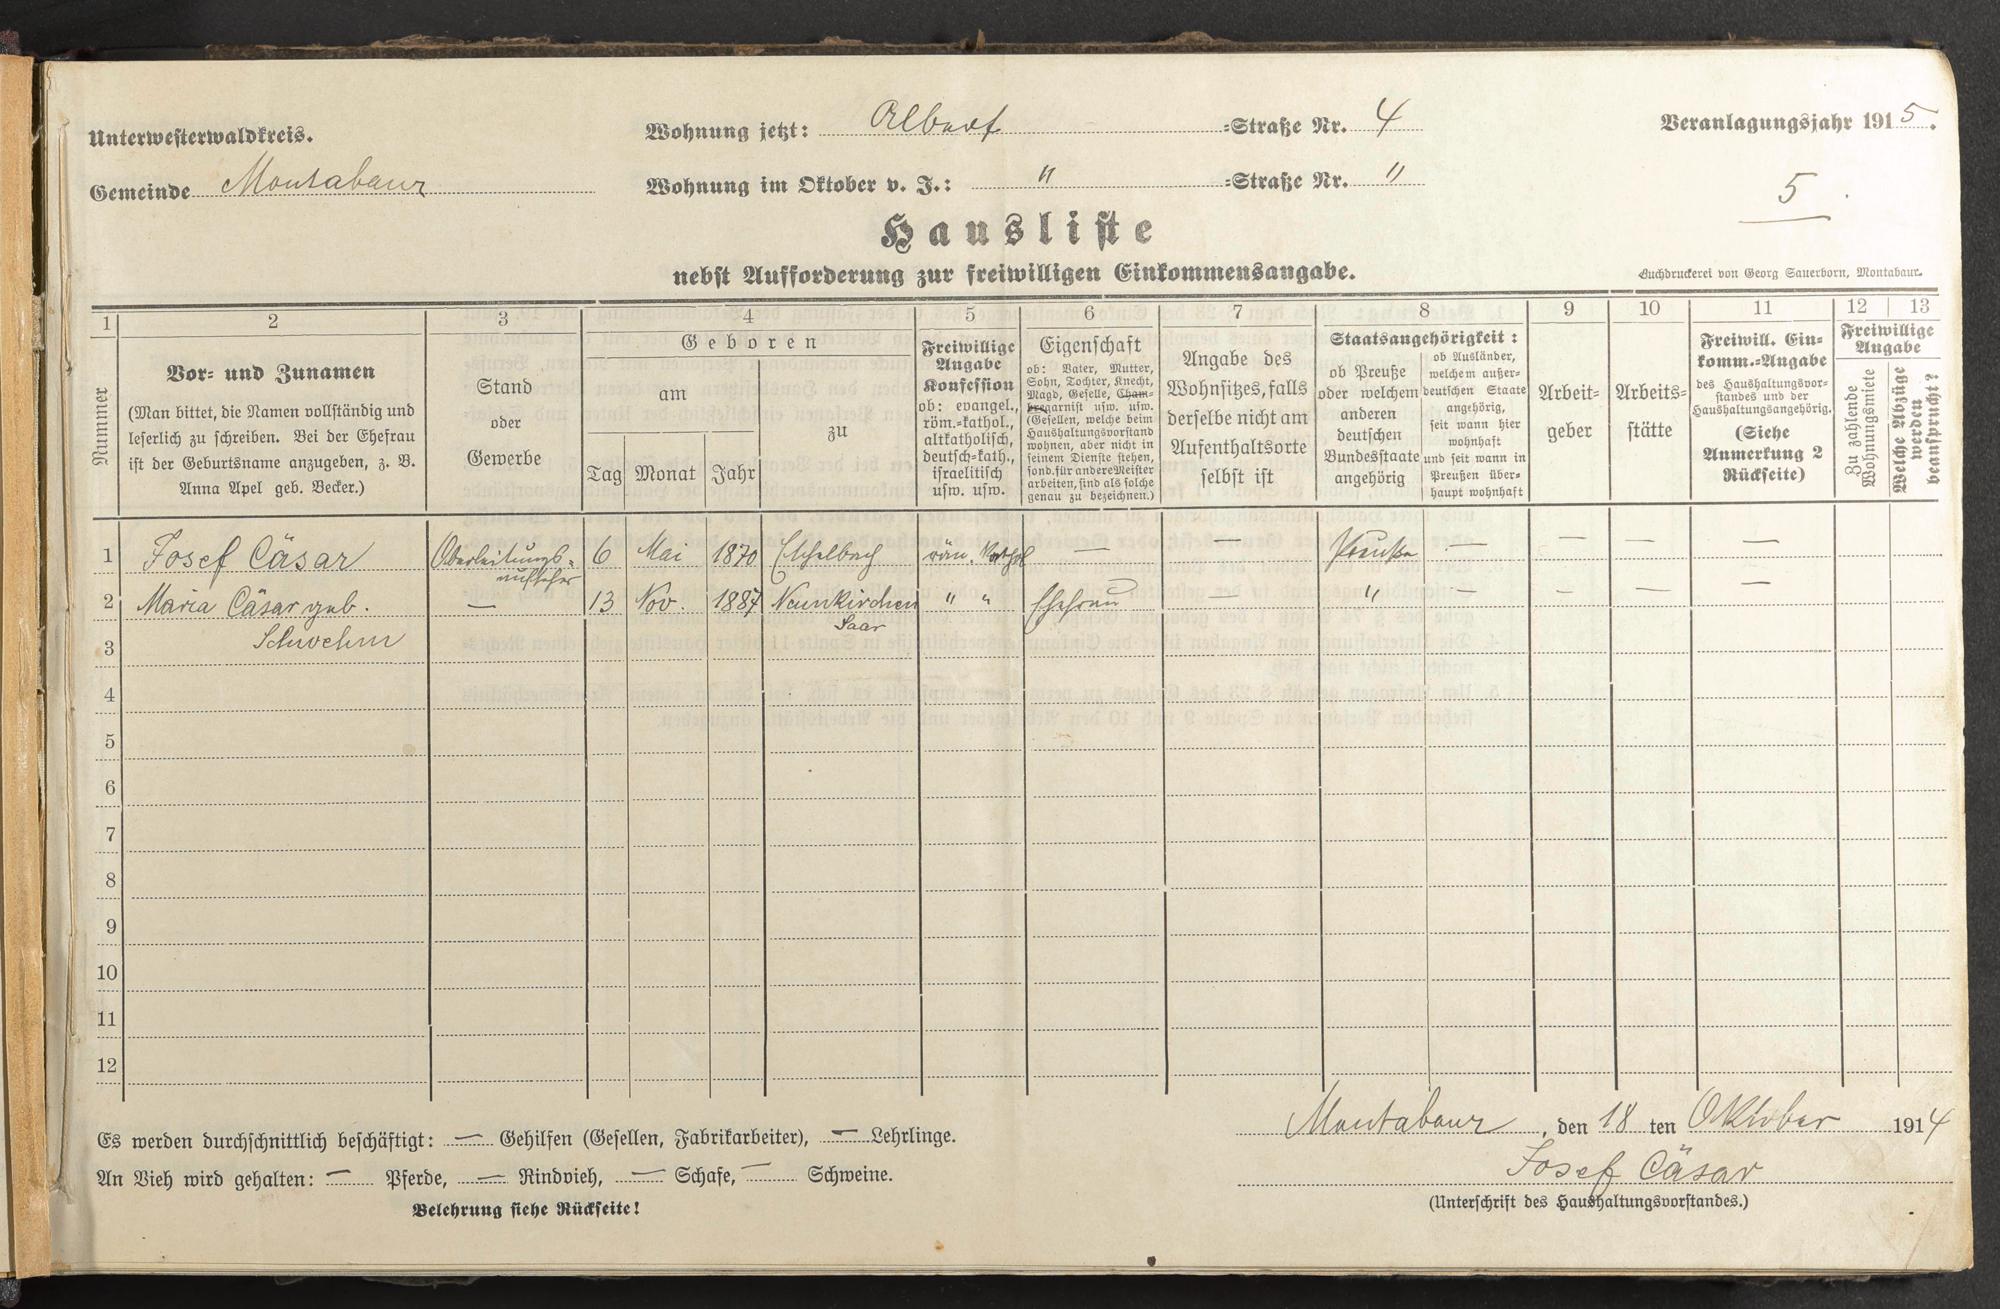 Unterwesterwaldkreis.
Gemeinde Montabaur
Wohnung jetzt: Albert =Straße Nr. 4
Wohnung im Oktober v. J.: " =Straße Nr. "
Veranlagungsjahr 1915.
5
Hausliste
nebst Aufforderung zur freiwilligen Einkommensangabe.
Buchdruckerei von Georg Sauerborn, Montabaur.
1 2 3 4 5 6 7 8 9 10 11 12 13
Nummer
Vor- und Zunamen
(Man bittet, die Namen vollständig und
leserlich zu schreiben. Bei der Ehefrau
ist der Geburtsname anzugeben, z. B.
Anna Apel geb. Becker.)
Stand
oder
Gewerbe
Geboren
am
Tag Monat Jahr
zu
Freiwillige
Angabe
Konfession
ob: evangel.,
röm.=kathol.,
altkatholisch,
deutsch=kath.,
israelitisch
usw. usw.
Eigenschaft
ob: Vater, Mutter,
Sohn, Tochter, Knecht,
Magd, Geselle, Cham-
bregarnist usw. usw.
(Gesellen, welche beim
Haushaltungsvorstand
wohnen, aber nicht in
seinem Dienste stehen,
sond. für andere Meister
arbeiten, sind als solche
genau zu bezeichnen.)
Angabe des
Wohnsitzes, falls
derselbe nicht am
Aufenthaltsorte
selbst ist
Staatsangehörigkeit:
ob Preuße
oder welchem
anderen
deutschen
Bundesstaate
angehörig
ob Ausländer,
welchem außer-
deutschen Staate
angehörig,
seit wann hier
wohnhaft
und seit wann in
Preußen über-
haupt wohnhaft
Arbeit-
geber
Arbeits-
stätte
Freiwill. Ein-
komm.=Angabe
des Haushaltungsvor-
standes und der
Haushaltungsangehörig.
(Siehe
Anmerkung 2
Rückseite)
Freiwillige
Angabe
Zu zahlende
Wohnungsmiete
Welche Abzüge
werden
beansprucht?
1 Josef Cäsar Oberleitungs= 6 Mai 1870 röm. Kathol — — Preuße — — — —
aufseher
2 Maria Cäsar geb. — 13 Nov. 1887 Neunkirchen " " Ehefrau — " — — — —
Schwehm Saar
3
4
5
6
7
8
9
10
11
12
Es werden durchschnittlich beschäftigt: — Gehilfen (Gesellen, Fabrikarbeiter), — Lehrlinge.
An Vieh wird gehalten: — Pferde, — Rindvieh, — Schafe, — Schweine.
Belehrung siehe Rückseite!
Montabaur, den 18 ten Oktober 1914
Josef Cäsar
(Unterschrift des Haushaltungsvorstandes.)